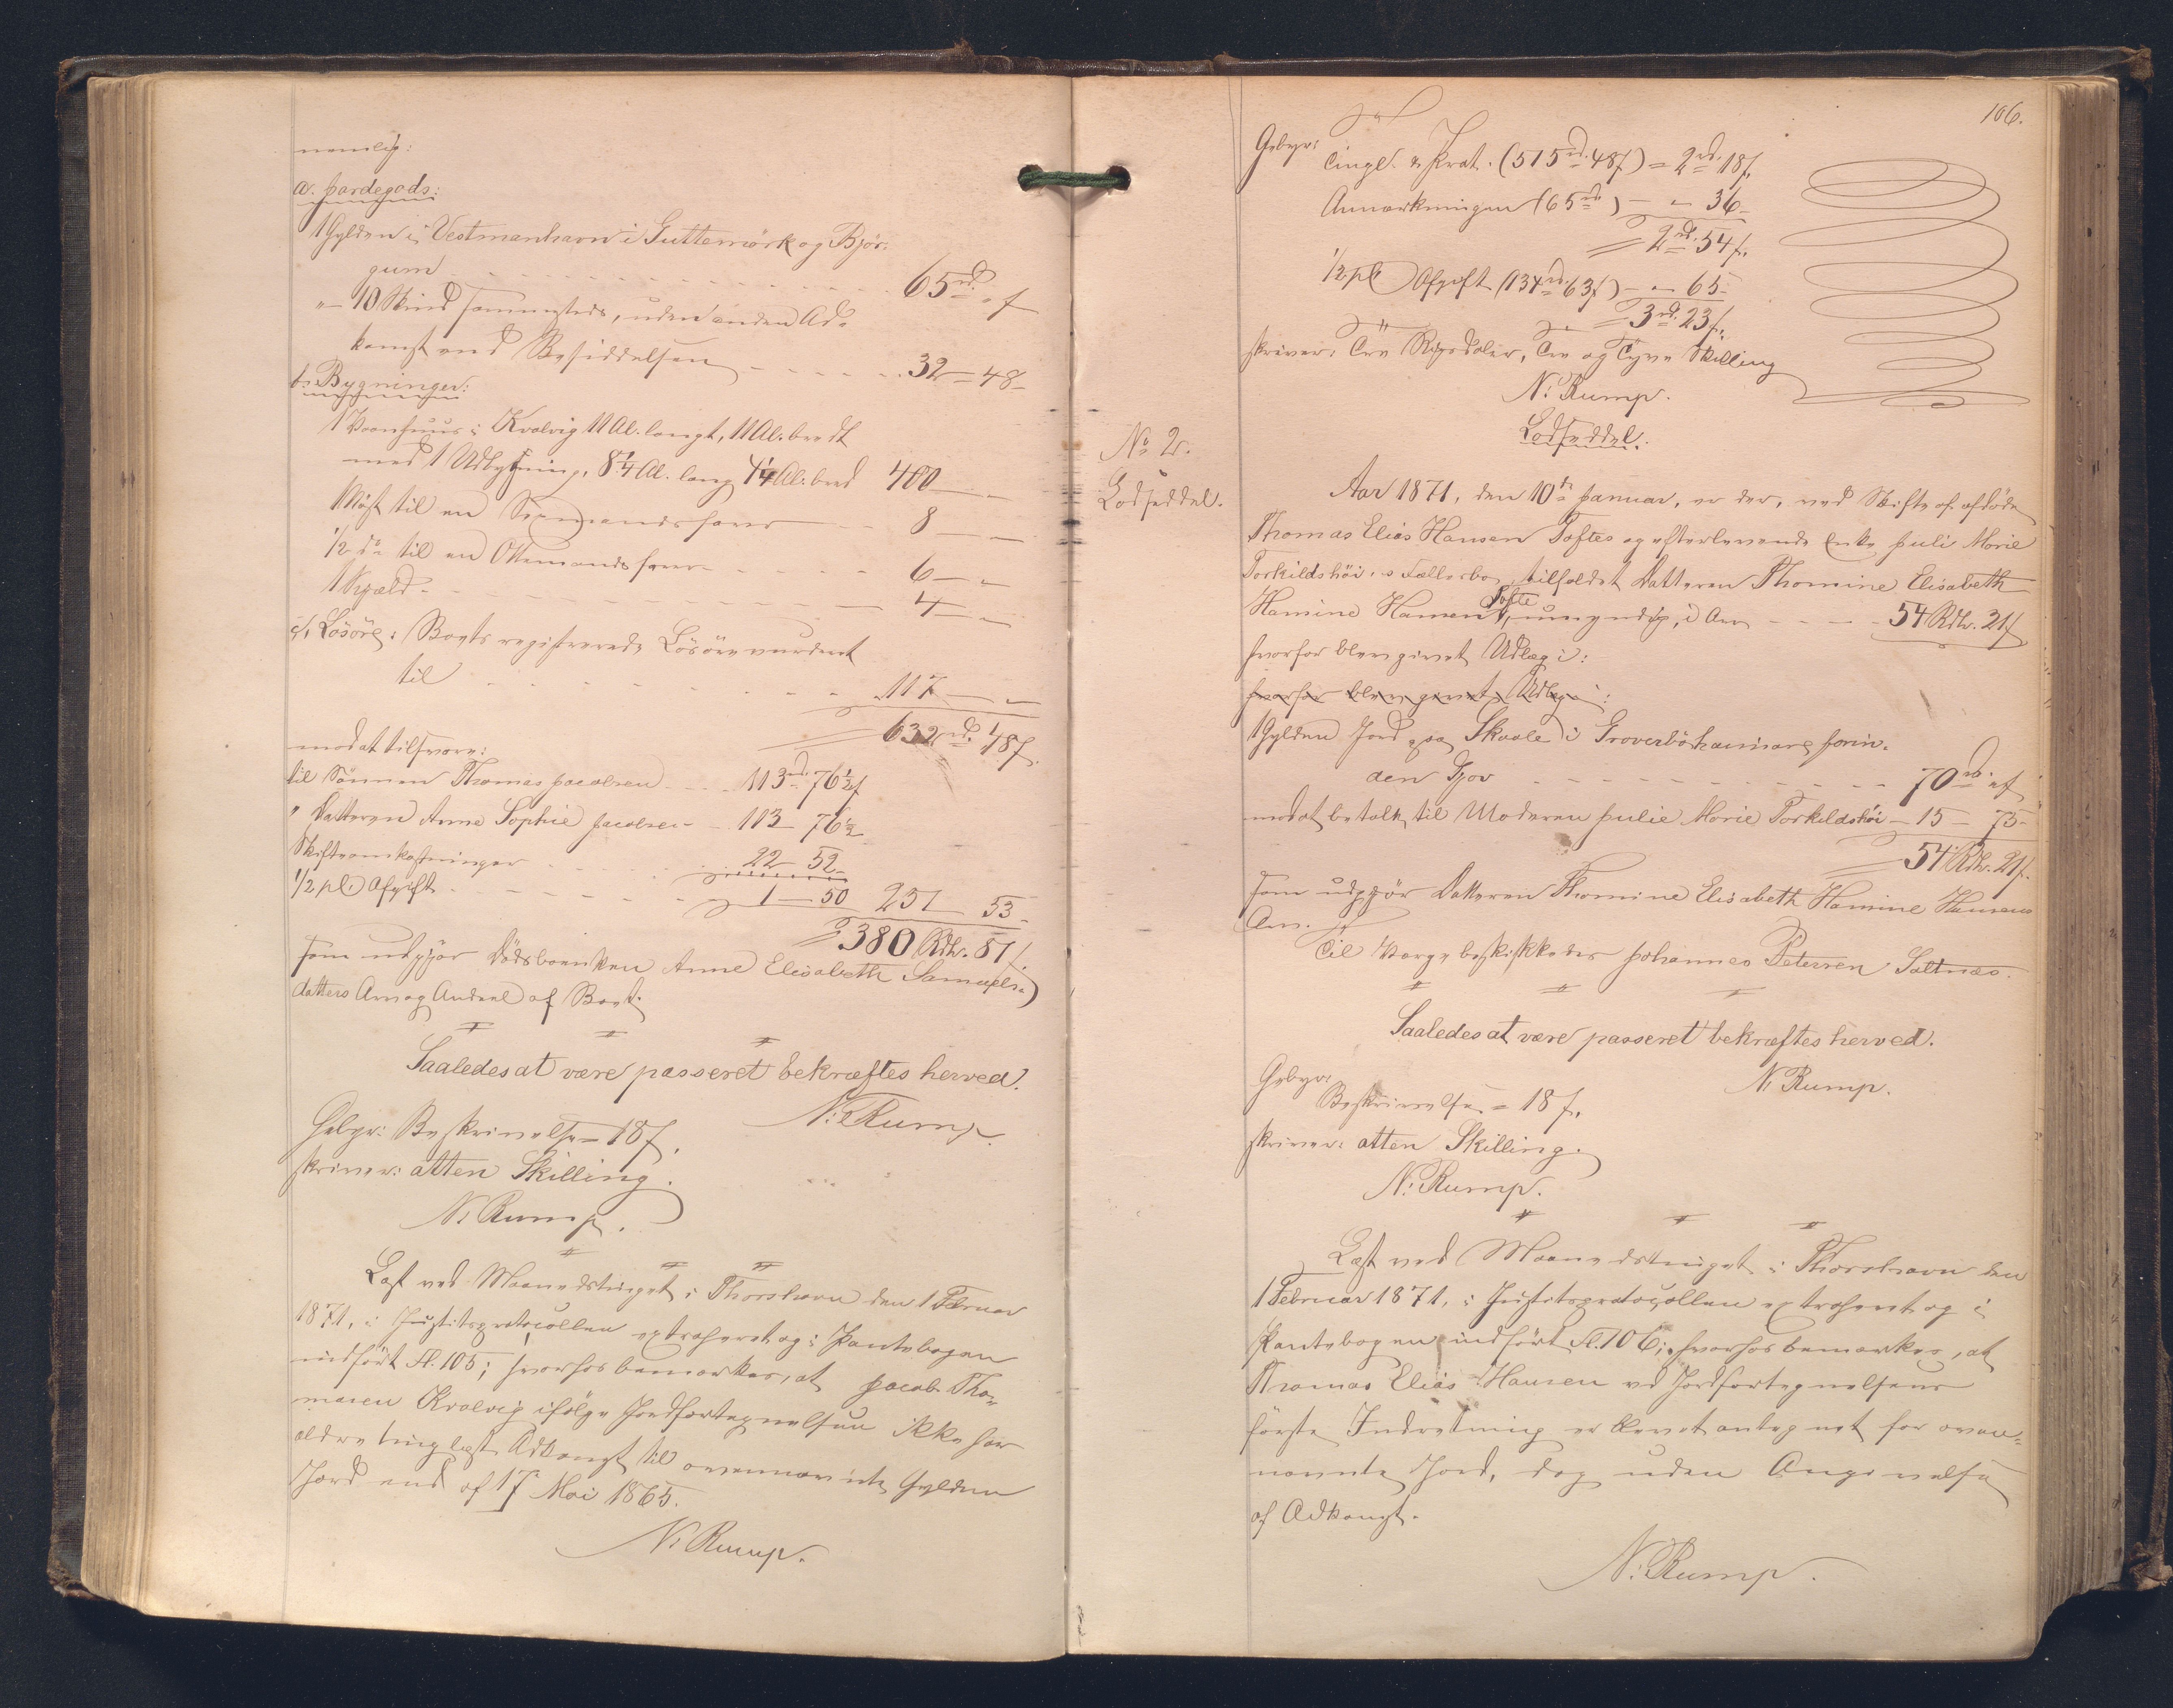 nemlig:
a. Jordegods:
1 Gylden i Vestmanhavn i Guttemörk og Björ-
gum 65 rd. " ſ
" 10 Skind sammesteds, uden anden Ad-
komst end Besiddelsen 32 – 48 –
b. Bygninger:
1 Vaanhuus i Kvalvig 11 Al. langt, 11 Al. bredt
med 1 Udbygning, 8¼ Al. lang 4¼ Al. bred 400 – –
1 Nöst til en Sexmandsfarer 8 – –
1/2 do til en Ottemandsfarer 6 – –
1 Kjæld 4 – –
c, Lösöre: Boets registrerede Lösöre vurderet
til 117 – –
632 rd. 48 ſ.
modat tilsvare:
til Sönnen Thomas Jacobsen 113 rd. 76½ ſ
" Datteren Anne Sophie Jacobsen 113 – 76½
Skifteomkostninger 22 – 52 –
1/2 pCt Afgift 1 – 50 251 – 53 –
380 Rdlr. 81 ſ.
som udgjör Dödsboenken Anne Elisabeth Samuels-
datters Arv og Andeel af Boet.
Saaledes at være passeret bekræftes herved.
N: Rump.
Gebyr: Beskrivelse = 18 ſ.
skriver: atten Skilling.
N: Rump.
Læst ved Maanedstinget i Thorshavn den 1 Februar
1871, i Justitsprotocollen extraheret og i Pantebogen
indfört Fl. 105; hvorhos bemærkes, at Jacob Tho-
masen Kvalvig ifölge Jordfortegnelsen ikke har
ældre tinglæst Adkomst til ovennævnte Gylden
Jord end af 17 Mai 1865.
N: Rump.
106.
Gebyr:
Tingl. & Prot. (515 rd. 48 ſ) = 2 rd. 18 ſ.
Anmærkningen (65 rd) – " – 36 –
= 2 rd. 54 ſ.
1/2 pCt Afgift (134 rd. 63 ſ) – " – 65 –
= 3 rd. 23 ſ.
skriver: Tre Rigsdaler, Tre og Tyve Skilling
N: Rump.
Lodseddel.
No 2.
Lodseddel.
Aar 1871, den 10de Januar, er der, ved Skifte af afdöde
Thomas Elias Hansen Toftes og efterlevende Enke Juli Marie
Torkildshöi's Fællesbo, tilfaldet Datteren Thomine Elisabeth
Hamine Hansen Tofte, umyndig, i Arv 54 Rdlr. 21 ſ
hvorfor blev givet Udlæg i:
hvorfor blev givet Udlæg i:
1 Gylden Jord paa Skaale i Groverböhauiare forin-
den Gjov 70 rd. " ſ
modat betale til Moderen Julie Marie Torkildshöi – 15 – 75 –
54 Rdlr. 21 ſ.
som udgjör Datteren Thomine Elisabeth Hamine Hansens
Arv.
Til Værge beskikkedes Johannes Petersen Saltnæs.
Saaledes at være passeret bekræftes herved.
N: Rump.
Gebyr:
Beskrivelse = 18 ſ.
skriver: atten Skilling.
N: Rump.
Læst ved Maanedstinget i Thorshavn den
1 Februar 1871, i Justitsprotocollen extraheret og i
Pantebogen indfört Fl. 106; hvorhos bemærkes, at
Thomas Elias Hansen ved Jordfortegnelsens
förste Indretning er blevet antegnet for oven-
nævnte Jord, dog uden Angivelse
af Adkomst.
N: Rump.